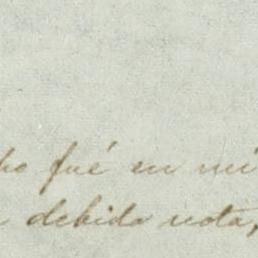 ho fué en mi
debida nota,